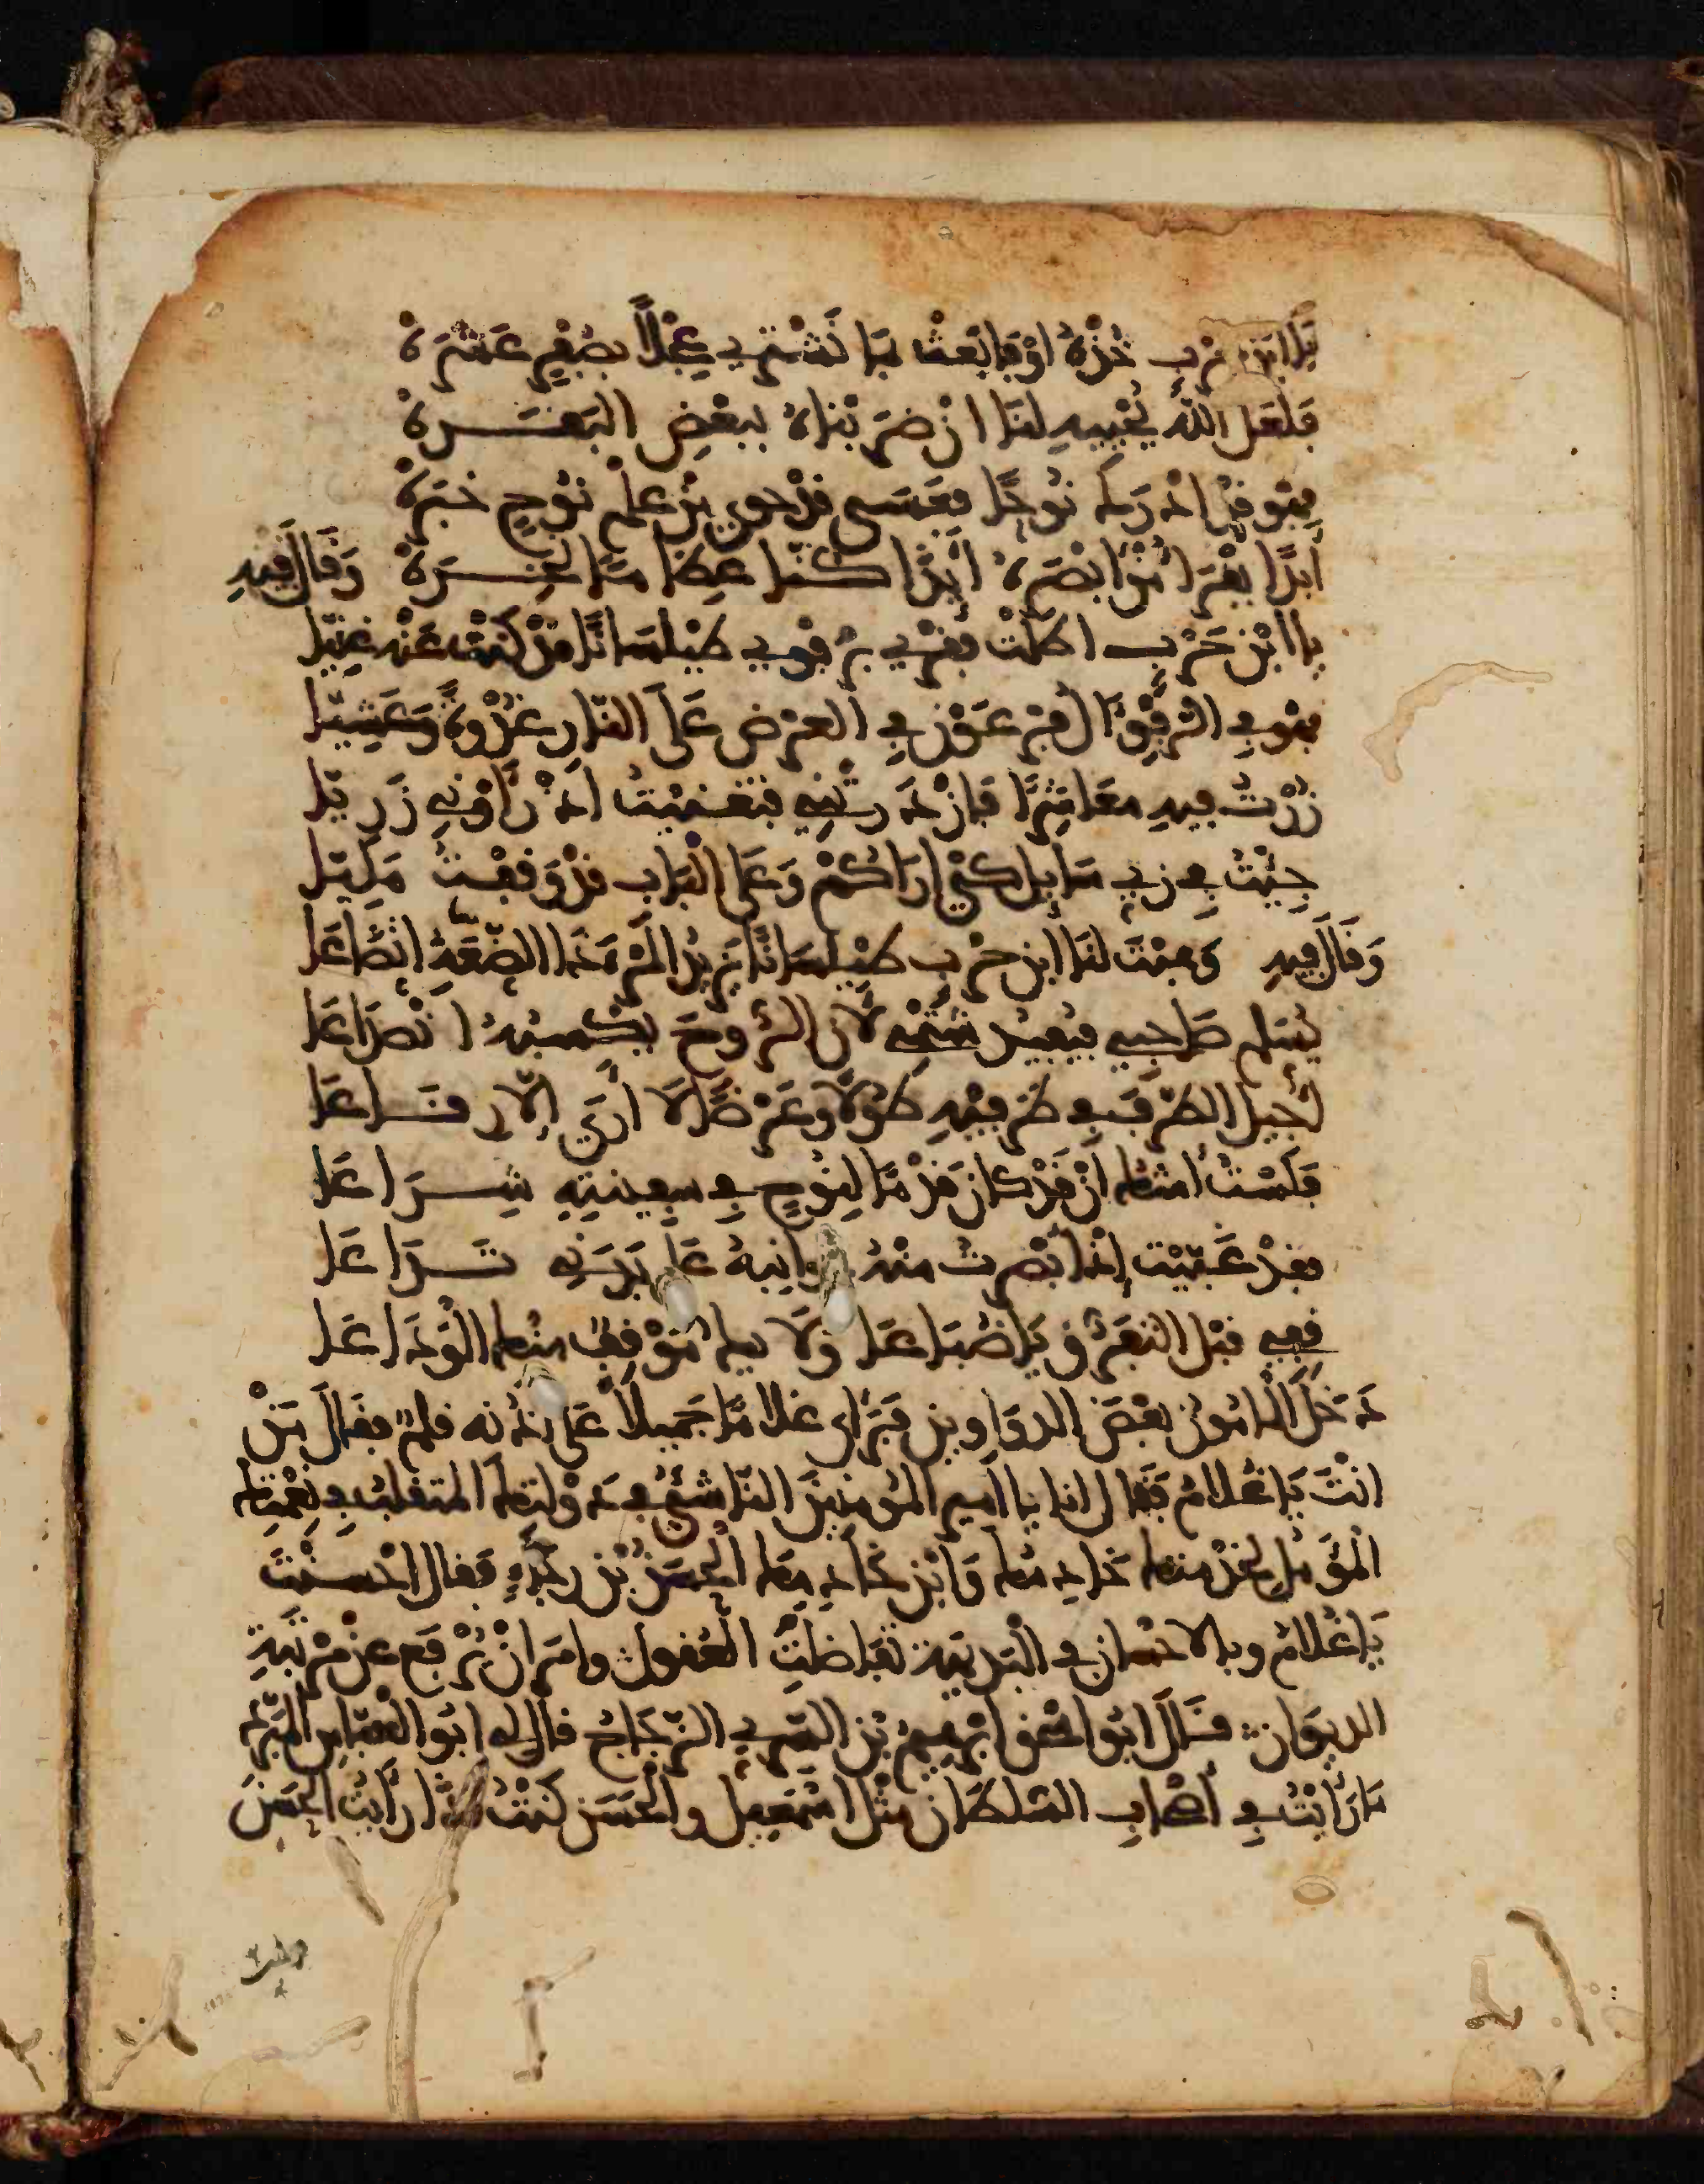 يَا ابْنَ حَرْبٍ خُذْهُ اوْ فَابْعَثْ بِمَا نَشْتَرِي عِجْلًا بِصُفْرٍ عَشَرَهْ
فَلَعَلَّ اللَّهَ يُحْيِيهِ لَنَا انْ ضَرَبْنَاهُ بِبَعْضِ الْبَقَرَهْ
فهْوَ قَدْ ادْرَكَ نُوحًا فَعَسَى قَدْ حَوى مِنْ عِلْمِ نُوحٍ خَبَرَهْ
أَبَدًا يَقْرَا مَنْ ابْصَرَهُ أَئِذَا كُنَّا عِظَامًا نَخِرَهْ وَقَالَ فِيهِ
يا ابْنَ حَرْبٍ اطَلْتَ فَقْرِي بِرَفْوِي طَيْلَسَانًا قَدْ كُنْتُ عَنْهُ غَنِيَّا
فهْوَ فِي الرَّفْوِ آلُ فِرْعَوْنَ فِي الْعَرْضِ عَلَى النَّارِ غُدْوَةً وَعَشِيَّا
زُرْتُ فِيهِ مَعَاشِرًا فَازْدَرَوْنِي فَتَغَنَّيْتُ اذْ رَأَوْنِي زَرِيَّا
جِئْتُ فِي زِيِّ سَائِلٍ كَيْ ارَاكُمْ وَعَلَى الْبَابِ قَدْ وَقَفْتُ مَلِيَّا
وَقَالَ فِيهِ وَهَبْتَ لَنَا ابْنَ حَرْبٍ طَيْلَسَانًا يَزِيدُ الْمَرْءَ ذَا الضَّعَةِ اتِّضَاعَا
يُسَلِّمُ صَاحِبِي فَيُفِيدُ شَتْمِي لأَنَّ الرُّوحَ يُكْسِبُهُ انْصِدَاعَا
أُجِيلُ الطَّرْفَ فِي طَرَفَيْهِ طُولًا وَعَرْضًا لَا أَرَى إِلَّا رِقَاعَا
فَلَسْتُ أَشُكُّ انْ قَدْ كَانَ قِدْمًا لِنُوحٍ فِي سَفِينَتِهِ شِرَاعَا
فَقَدْ غَنَّيْتُ إِذْ أَبْصَرْتُ مِنْهُ جَوَانِبَهُ عَلَى بَدَنِي تَدَاعَا
قِفِي قَبْلَ التَّفَرُّقِ يَا ضُبَاعَا وَلَا يَكُ مَوْقِفٌ مِنْكِ الْوَدَاعَا
دَخَلَ الْمَامُونُ بَعْضَ الدَّوَاوِينِ فَرَأى غُلَامًا جَمِيلًا عَلَى اذنه قَلَمٌ فَقَالَ مَنْ
انْتَ يَا غُلَامُ فَقَالَ انا يا امير المؤمنين النَّاشِئُ فِي دَوْلَتِكَ المتقلّب فِي نِعْمَتِكَ
الْمُؤَمِّلُ لِخِدْمَتِكَ خَادِمُكَ وَابْنُ خَادِمِكَ الْحَسَنُ بْنُ رَجَاءٍ فَقَالَ احْسَنْتَ
يَا غُلَامُ وبالاحْسَانِ فِي الْبَدِيهَةِ تَفَاضَلَتِ الْعُقُولُ وامَرَ انْ يُرْفَعَ عَنْ مَرْتَبَةِ
الديوان قَالَ ابُو اسْحَقَ ابْرَهِيمُ بْنُ السَّرِيِّ الزَّجَّاجُ قَالَ لِي ابُو الْعَبَّاسِ الْمُبَرِّدُ
مَا رَأَيْتُ فِي أَصْحَابِ السُّلْطَانِ مِثْلَ اسْمَعِيلَ والْحَسَنِ كُنْتُ اذَا رَأَيْتُ الْحَسَنَ